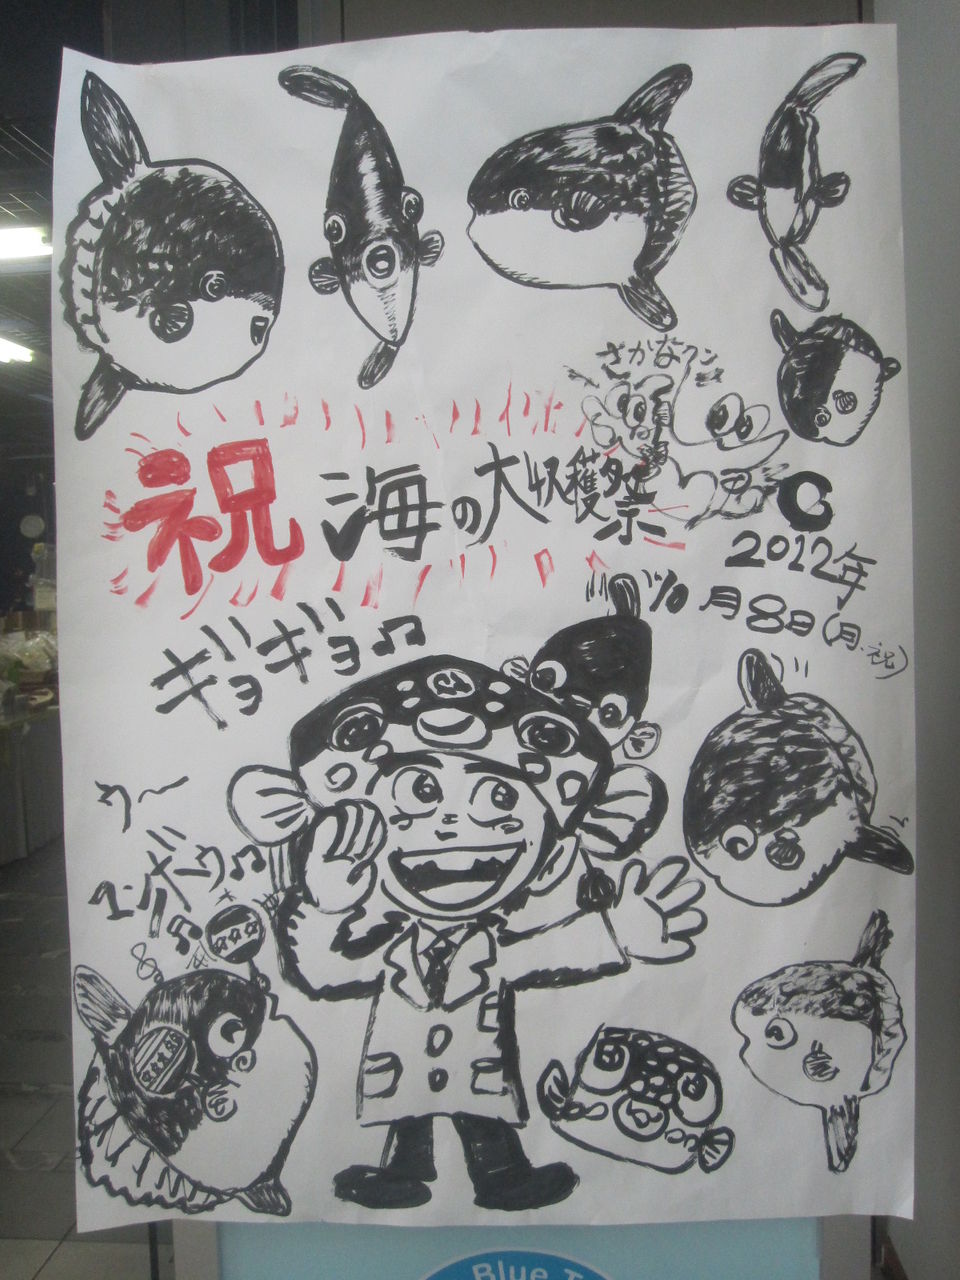 さかなクン
祝 海の大収穫祭
2012年
10月8日(月・祝)
ギョギョ♫
ウー
マンボーウ♫
Blue T